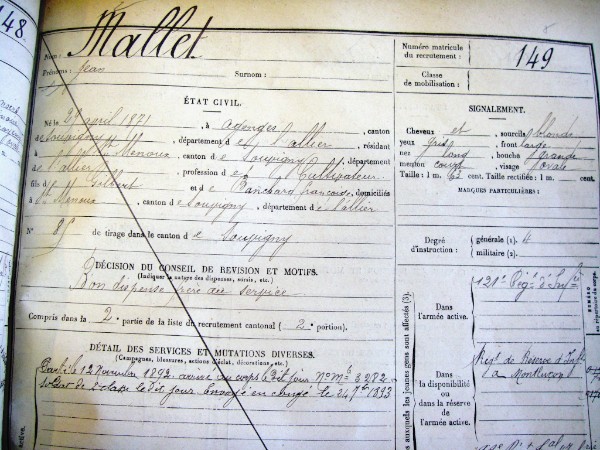 148.
Nom : Mallet
Prénoms : Jean Surnom :
ÉTAT CIVIL.
Né le 29 avril 1871, à , canton
de Souvigny, département de l'allier, résidant
à St Menoux, canton de Souvigny, département
de l'allier, profession de Cultivateur
fils de Gilbert et de Françoise, domiciliés
à St Menoux, canton de Souvigny, département de l'allier
N° 85 de tirage dans le canton de Souvigny
DÉCISION DU CONSEIL DE REVISION ET MOTIFS.
(Indiquer la nature des dispenses, sursis, etc.)
Bon dispensé frère au service
Compris dans la 2e partie de la liste du recrutement cantonal ( 2e portion).
DÉTAIL DES SERVICES ET MUTATIONS DIVERSES.
(Campagnes, blessures, actions d'éclat, décorations, etc.)
Parti le 12 Novembre 1892 arrivé au corps le dit jour N° Mle 3282
soldat de 2e classe le dit jour Envoyé en congé le 24 7bre 1893
Numéro matricule
du recrutement : 149
Classe
de mobilisation :
SIGNALEMENT.
Cheveux et sourcils blonds
yeux gris front large
nez bouche grande
menton court visage ovale
Taille : 1 m. 62 cent. Taille rectifiée : 1 m. cent.
MARQUES PARTICULIÈRES :
Degré
d'instruction : générale (1).
militaire (2).
121e Régt d'Infie
Dans
l'armée active.
Régt de Réserve d'Infie
à Montluçon
Dans
la disponibilité
ou dans la réserve
de
l'armée active.
auxquels les jeunes gens sont affectés (3).
NUMÉRO